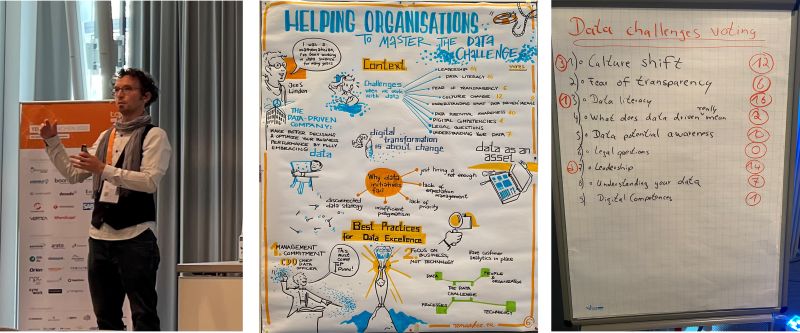 HELPING ORGANISATIONS
TO MASTER THE DATA
CHALLENGE
I WAS A
MATHEMATICIAN,
FOR MANY YEARS
JENS
LINDEN
Context
Challenges
when we work
with data
VOTES
LEADERSHIP 14
DATA LITERACY 16
FEAR OF TRANSPARENCY 6
CULTURE CHANGE 12
UNDERSTANDING WHAT DATA DRIVEN MEANS
DATA POTENTIAL AWARENESS 10
DIGITAL COMPETENCIES
LEGAL QUESTIONS
UNDERSTANDING YOUR DATA 7
THE
DATA-DRIVEN
COMPANY:
MAKE BETTER DECISIONS
& OPTIMIZE YOUR BUSINESS
PERFORMANCE BY FULLY
EMBRACING
data
digital
transformation
is about change
data as an
asset
Why data
initiatives
fail
just hiring is
not enough
lack of
expectation
management
lack of
priority
insufficient
pragmatism
disconnected
data strategy
Best Practices
for Data Excellence
1. MANAGEMENT
COMMITMENT
CDO CHIEF DATA
OFFICER
This
must
come
TOP
Down!
2. FOCUS ON
BUSINESS,
NOT TECHNOLOGY
Have customer
analytics in place
DATA
PEOPLE &
ORGANISATION
THE DATA
CHALLENGE
PROCESSES
TECHNOLOGY
6
Data challenges voting
3 1) Culture shift 12
2) Fear of transparency 6
1 3) Data literacy 16
4) What does data driven really mean 2
5) Data potential awareness
6) Legal questions 0
2 7) Leadership 14
8) Understanding your data 7
9) Digital Competences 1